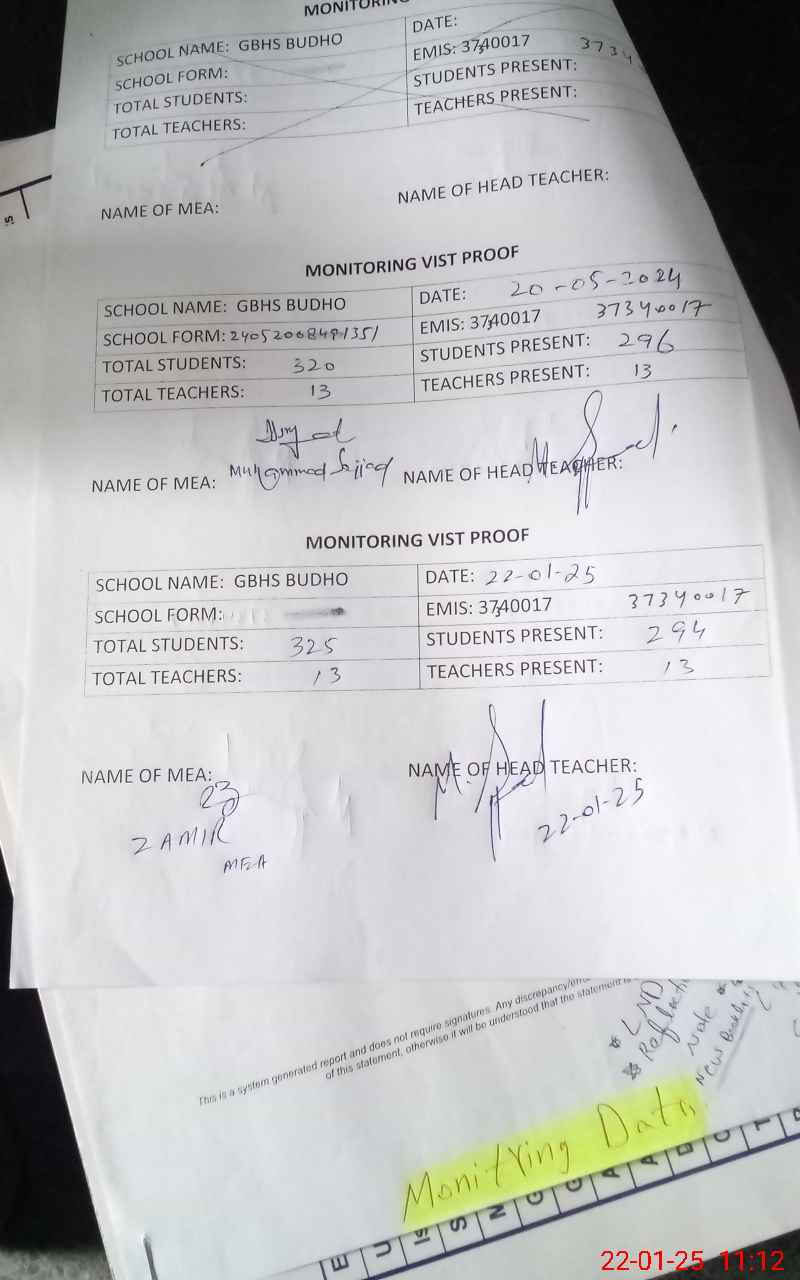 MONITORING
SCHOOL NAME: GBHS BUDHO DATE:
SCHOOL FORM: EMIS: 3740017 3734
TOTAL STUDENTS: STUDENTS PRESENT:
TOTAL TEACHERS: TEACHERS PRESENT:
NAME OF MEA: NAME OF HEAD TEACHER:
MONITORING VIST PROOF
SCHOOL NAME: GBHS BUDHO DATE: 20-05-2024
SCHOOL FORM: 24052068491351 EMIS: 3740017 37340017
TOTAL STUDENTS: 320 STUDENTS PRESENT: 296
TOTAL TEACHERS: 13 TEACHERS PRESENT: 13
NAME OF MEA: Muhammad Sajjad NAME OF HEAD TEACHER:
MONITORING VIST PROOF
SCHOOL NAME: GBHS BUDHO DATE: 22-01-25
SCHOOL FORM: EMIS: 3740017 37340017
TOTAL STUDENTS: 325 STUDENTS PRESENT: 294
TOTAL TEACHERS: 13 TEACHERS PRESENT: 13
NAME OF MEA: NAME OF HEAD TEACHER:
22-01-25
ZAMIR
MEA
This is a system generated report and does not require signatures. Any discrepancy
of this statement, otherwise it will be understood that the statement is
* LND
* Reflecti
Note
New
Monitring Data
22-01-25 11:12